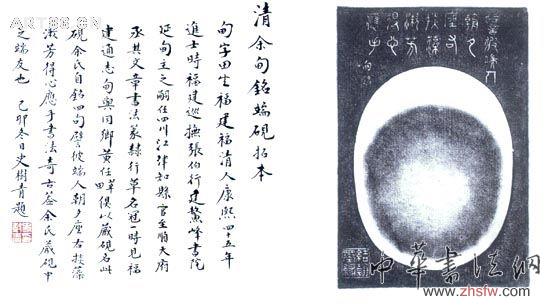 譬彼端人
朝夕
座右
掞藻
漱芳
得心
應手
清余甸銘端硯拓本
甸字田生福建福清人康熙四十五年
進士時福建巡撫張伯行建鰲峰書院
延甸主之嗣任四川江津知縣官至順天府
丞其文章書法篆隸行草名冠一時見福
建通志甸與同鄉黃任莘田俱以藏硯名此
硯余氏自銘四句譬彼端人朝夕座右掞藻
漱芳得心應手書法奇古蓋余氏藏硯中
之端友也 己卯冬日史樹青題
中華書法網
www.zhsfw.com